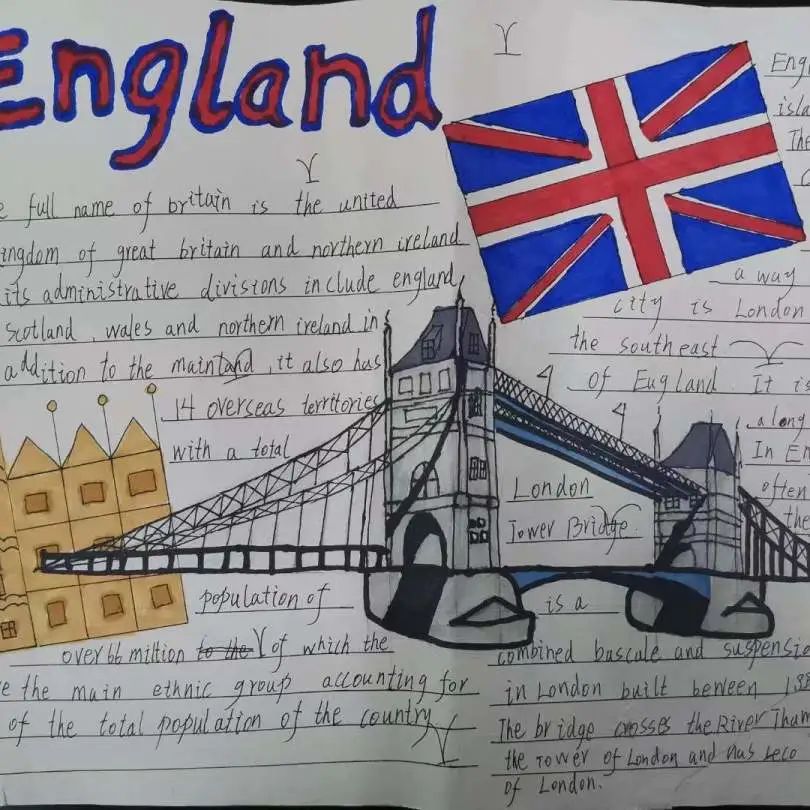 England
full name of britain is the united
ingdom of great britain and northern ireland
its administrative divisions include england,
scotland, wales and northern ireland in
addition to the maintand, it also has
14 overseas territories
with a total
population of
over 66 million to the of which the
the main ethnic group accounting for
of the total population of the country
Eng
isla
The
a way
city is London
the southeast
of Eugland. It is
along
In En
often
the
London
Tower Bridge
is a
combined bascale and suspensio
in London built berween 188
The bridge crosses the River Tham
the Tower of London and has beco
of London.